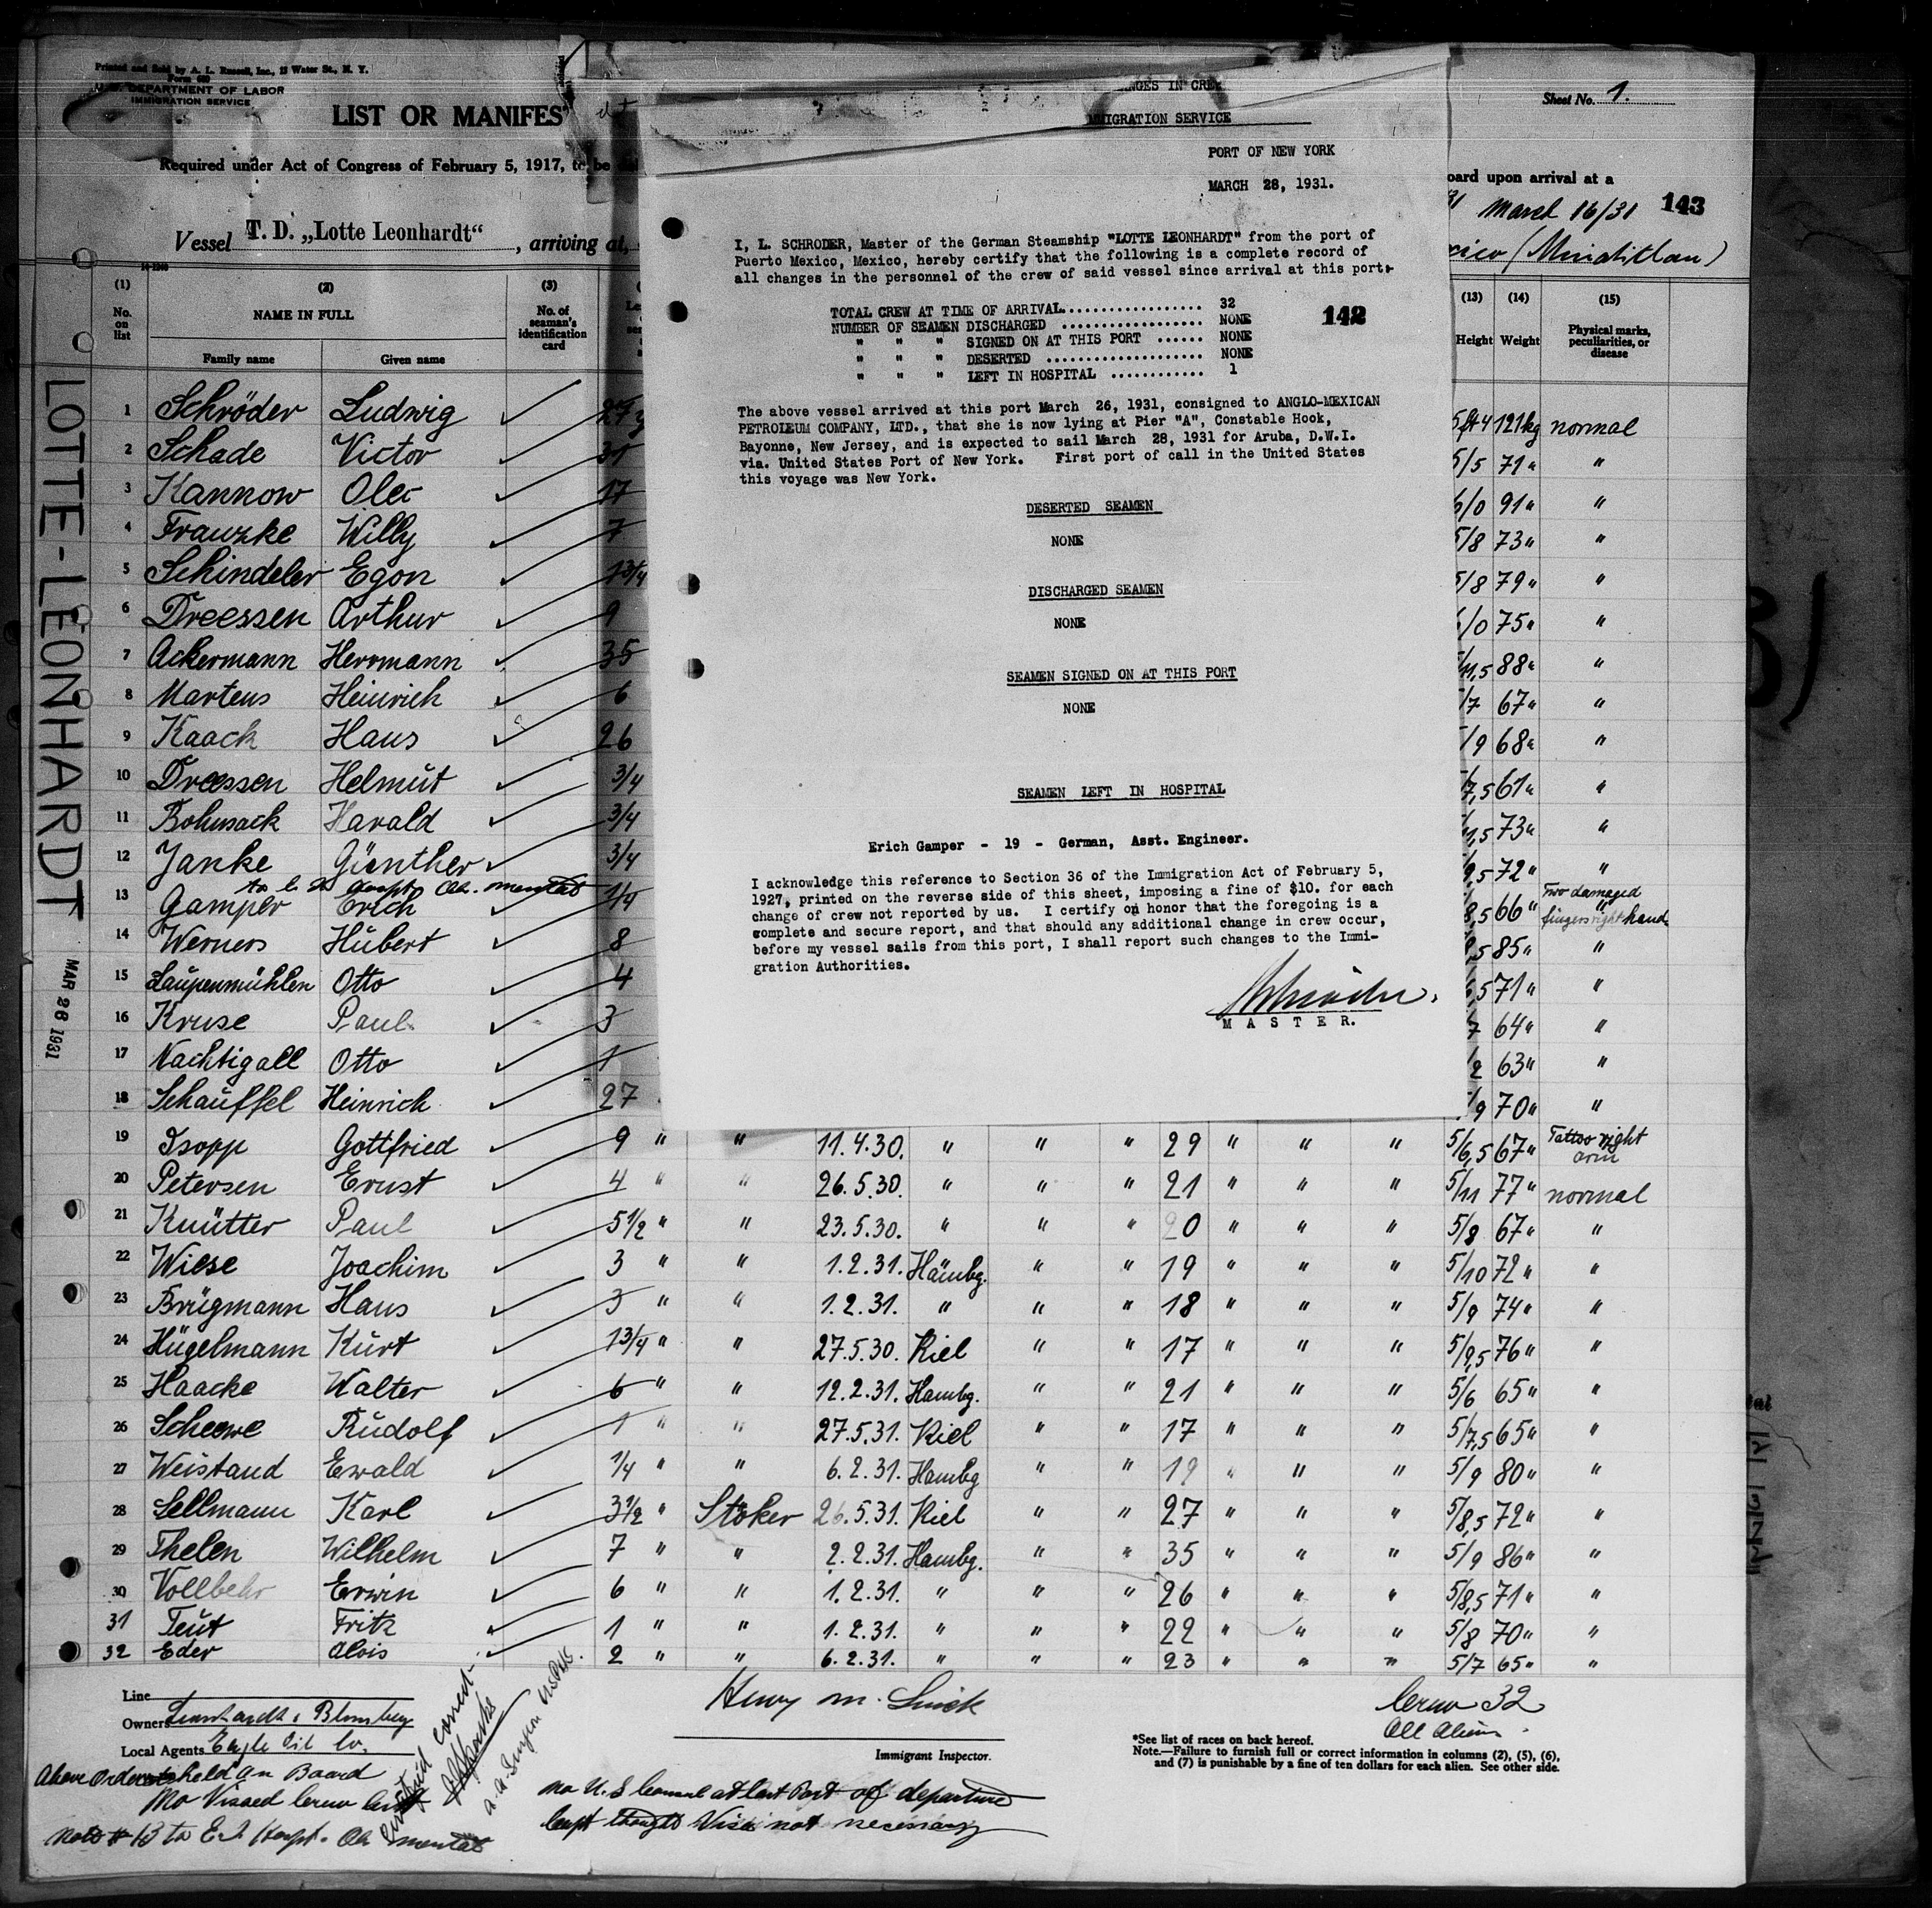 Printed and Sold by A. L. Russell, Inc., 15 Water St., N. Y.
Form 680
U. S. DEPARTMENT OF LABOR
IMMIGRATION SERVICE
LIST OR MANIFES
Required under Act of Congress of February 5, 1917, to be
Vessel T. D. „Lotte Leonhardt“, arriving at
Sheet No. 1.
oard upon arrival at a
March 16/31 143
xico (Minatitlan)
14-1240
(1) (2) (3) (13) (14) (15)
No. on list NAME IN FULL No. of seaman's identification card Height Weight Physical marks, peculiarities, or disease
Family name Given name
LOTTE-LEONHARDT
MAR 26 1931
NGES IN CRE
MMIGRATION SERVICE
PORT OF NEW YORK
MARCH 28, 1931.
I, L. SCHRODER, Master of the German Steamship "LOTTE LEONHARDT" from the port of
Puerto Mexico, Mexico, hereby certify that the following is a complete record of
all changes in the personnel of the crew of said vessel since arrival at this port.
TOTAL CREW AT TIME OF ARRIVAL.................. 32
NUMBER OF SEAMEN DISCHARGED .................. NONE
" " " SIGNED ON AT THIS PORT ...... NONE
" " " DESERTED .................... NONE
" " " LEFT IN HOSPITAL ............ 1
142
The above vessel arrived at this port March 26, 1931, consigned to ANGLO-MEXICAN
PETROLEUM COMPANY, LTD., that she is now lying at Pier "A", Constable Hook,
Bayonne, New Jersey, and is expected to sail March 28, 1931 for Aruba, D.W.I.
via. United States Port of New York. First port of call in the United States
this voyage was New York.
DESERTED SEAMEN
NONE
DISCHARGED SEAMEN
NONE
SEAMEN SIGNED ON AT THIS PORT
NONE
SEAMEN LEFT IN HOSPITAL
Erich Gamper - 19 - German, Asst. Engineer.
I acknowledge this reference to Section 36 of the Immigration Act of February 5,
1927, printed on the reverse side of this sheet, imposing a fine of $10. for each
change of crew not reported by us. I certify on honor that the foregoing is a
complete and secure report, and that should any additional change in crew occur,
before my vessel sails from this port, I shall report such changes to the Immi-
gration Authorities.
MASTER.
1 Schröder Ludwig 27 5/4 121kg normal
2 Schade Victor 31 5/5 71 "
3 Kannow Olec 17 6/0 91 "
4 Franzke Willy 7 5/8 73 "
5 Schindeler Egon 1 3/4 5/8 79 "
6 Dreessen Arthur 9 /0 75 "
7 Ackermann Herrmann 35 /11,5 88 "
8 Martens Heinrich 6 /7 67 "
9 Kaack Hans 26 /9 68 "
10 Dreessen Helmut 3/4 /7,5 61 "
11 Bohmsack Harald 3/4 /11,5 73 "
12 Janke Günther 3/4 /9,5 72 "
13 Gamper Erich 1/4 /8,5 66 " Two damaged fingers right hand
14 Werners Hubert 8 ,5 85 "
15 Laupenmühlen Otto 4 ,5 71 "
16 Kruse Paul 3 7 64 "
17 Nachtigall Otto 1 /2 63 "
18 Schauffel Heinrich 27 /9 70 "
19 Isopp Gottfried 9 " " 11.4.30. " " " 29 " " " 5/6,5 67 " Tattoo right arm
20 Petersen Ernst 4 " " 26.5.30. " " " 21 " " " 5/11 77 " normal
21 Knütter Paul 5 1/2 " " 23.5.30. " " " 20 " " " 5/8 67 " "
22 Wiese Joachim 3 " " 1.2.31. Hambg. " " 19 " " " 5/10 72 " "
23 Brügmann Hans 3 " " 1.2.31. " " " 18 " " " 5/9 74 " "
24 Hügelmann Kurt 1 3/4 " " 27.5.30. Kiel " " 17 " " " 5/9,5 76 " "
25 Haacke Walter 6 " " 12.2.31. Hambg. " " 21 " " " 5/6 65 " "
26 Scheewe Rudolf 1 " " 27.5.31. Kiel " " 17 " " " 5/7,5 65 " "
27 Weistand Ewald 1/4 " " 6.2.31. Hambg " " 19 " " " 5/9 80 " "
28 Sellmann Karl 3 1/2 " Stoker 26.5.31. Kiel " " 27 " " " 5/8,5 72 " "
29 Thelen Wilhelm 7 " " 2.2.31. Hambg. " " 35 " " " 5/9 86 " "
30 Vollbehr Erwin 6 " " 1.2.31. " " " 26 " " " 5/8,5 71 " "
31 Teut Fritz 1 " " 1.2.31. " " " 22 " " " 5/8 70 " "
32 Eder Alois 2 " " 6.2.31. " " " 23 " " " 5/7 65 " "
Line
Owners Leonhardt & Blumberg
Local Agents Eagle Oil Co.
Above ordered held on Board
No Visaed Crew List
Note # 13 to E.I. Hospt. mental
Henry M.
Immigrant Inspector.
No U.S Consul at last Port of departure
Capt thought Visa not necessary
Crew 32
All Aliens
*See list of races on back hereof.
Note.—Failure to furnish full or correct information in columns (2), (5), (6),
and (7) is punishable by a fine of ten dollars for each alien. See other side.